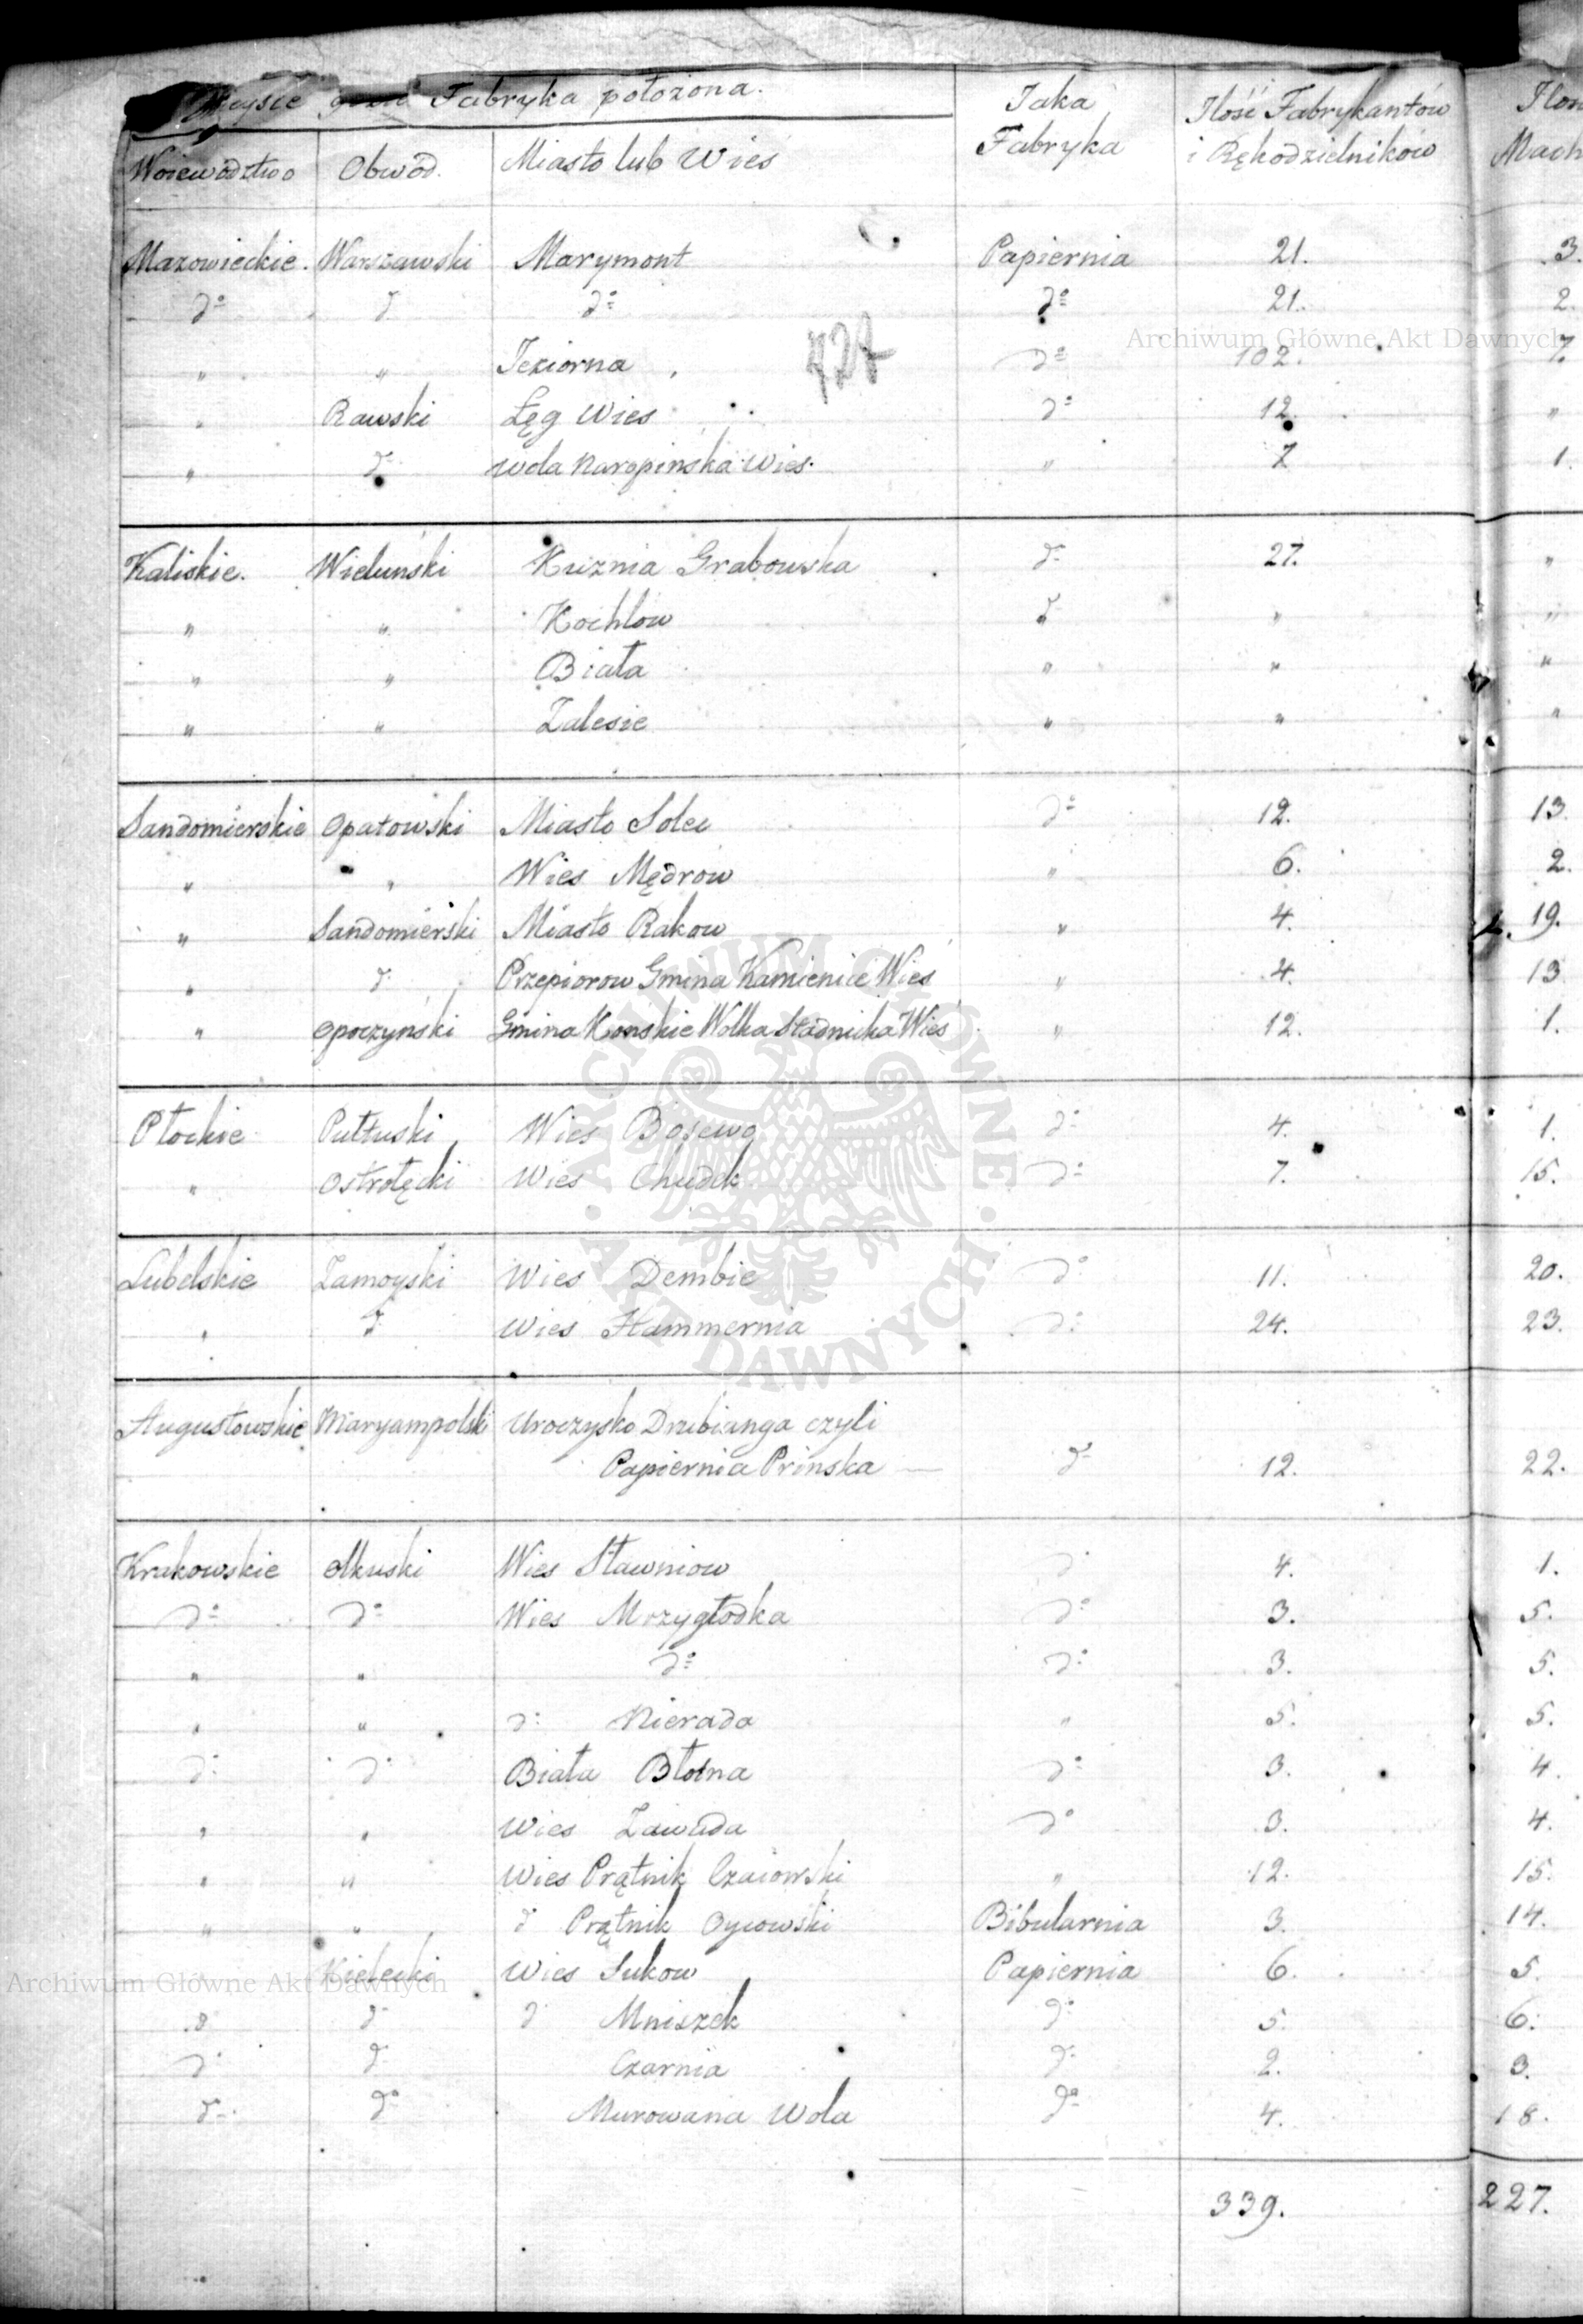 Mieysce gdzie Fabryka położona. Jaka Fabryka Ilość Fabrykantów i Rękodzielników Mach
Woiewództwo Obwód. Miasto lub Wieś
Mazowieckie. Warszawski Marymont Papiernia 21. 3.
do d do do 21. 2.
" " Jeziorna do 102. 7.
" Rawski Łęg Wies do 12. "
" d Wola Naropińska Wies. " 7 1.
427
Kaliskie. Wieluński Kuznia Grabowska d 27. "
" " Kochlow d " "
" " Biała " " "
" " Zalesie " " "
Sandomierskie Opatowski Miasto Solec do 12. 13.
" " Wies Mędrow " 6. 2.
" Sandomierski Miasto Rakow " 4. 19.
" d Przepiorow Gmina Kamienice Wieś " 4. 13
" Opoczyński Gmina Konskie Wolka Stadnicka Wieś " 12. 1.
Płockie Pułtuski Wieś Bosewo do 4. 1.
" Ostrołęcki Wies Chudek do 7. 15.
Lubelskie Zamoyski Wies Dembie do 11. 20.
" d Wies Hammernia do 24. 23.
Augustowskie Maryampolski Uroczysko Drubianga czyli
Papiernia Prinska d 12. 22.
Krakowskie Olkuski Wies Sławniow d 4. 1.
do do Wies Mrzygłodka do 3. 5.
" " do do 3. 5.
" " d: Nierada " 5. 5.
d: d: Biała Błotna do 3. 4.
" " Wies Zawada do 3. 4.
" " Wies Prątnik Czaiowski " 12. 15.
" " d Prątnik Oycowski Bibularnia 3. 14.
" Kielecki Wies Sukow Papiernia 6. 5.
d d d Mniszek do 5. 6.
d d Czarnia d 2. 3.
d do Murowana Wola do 4. 18.
339. 227.
Archiwum Główne Akt Dawnych
ARCHIWUM GŁÓWNE AKT DAWNYCH
Archiwum Główne Akt Dawnych